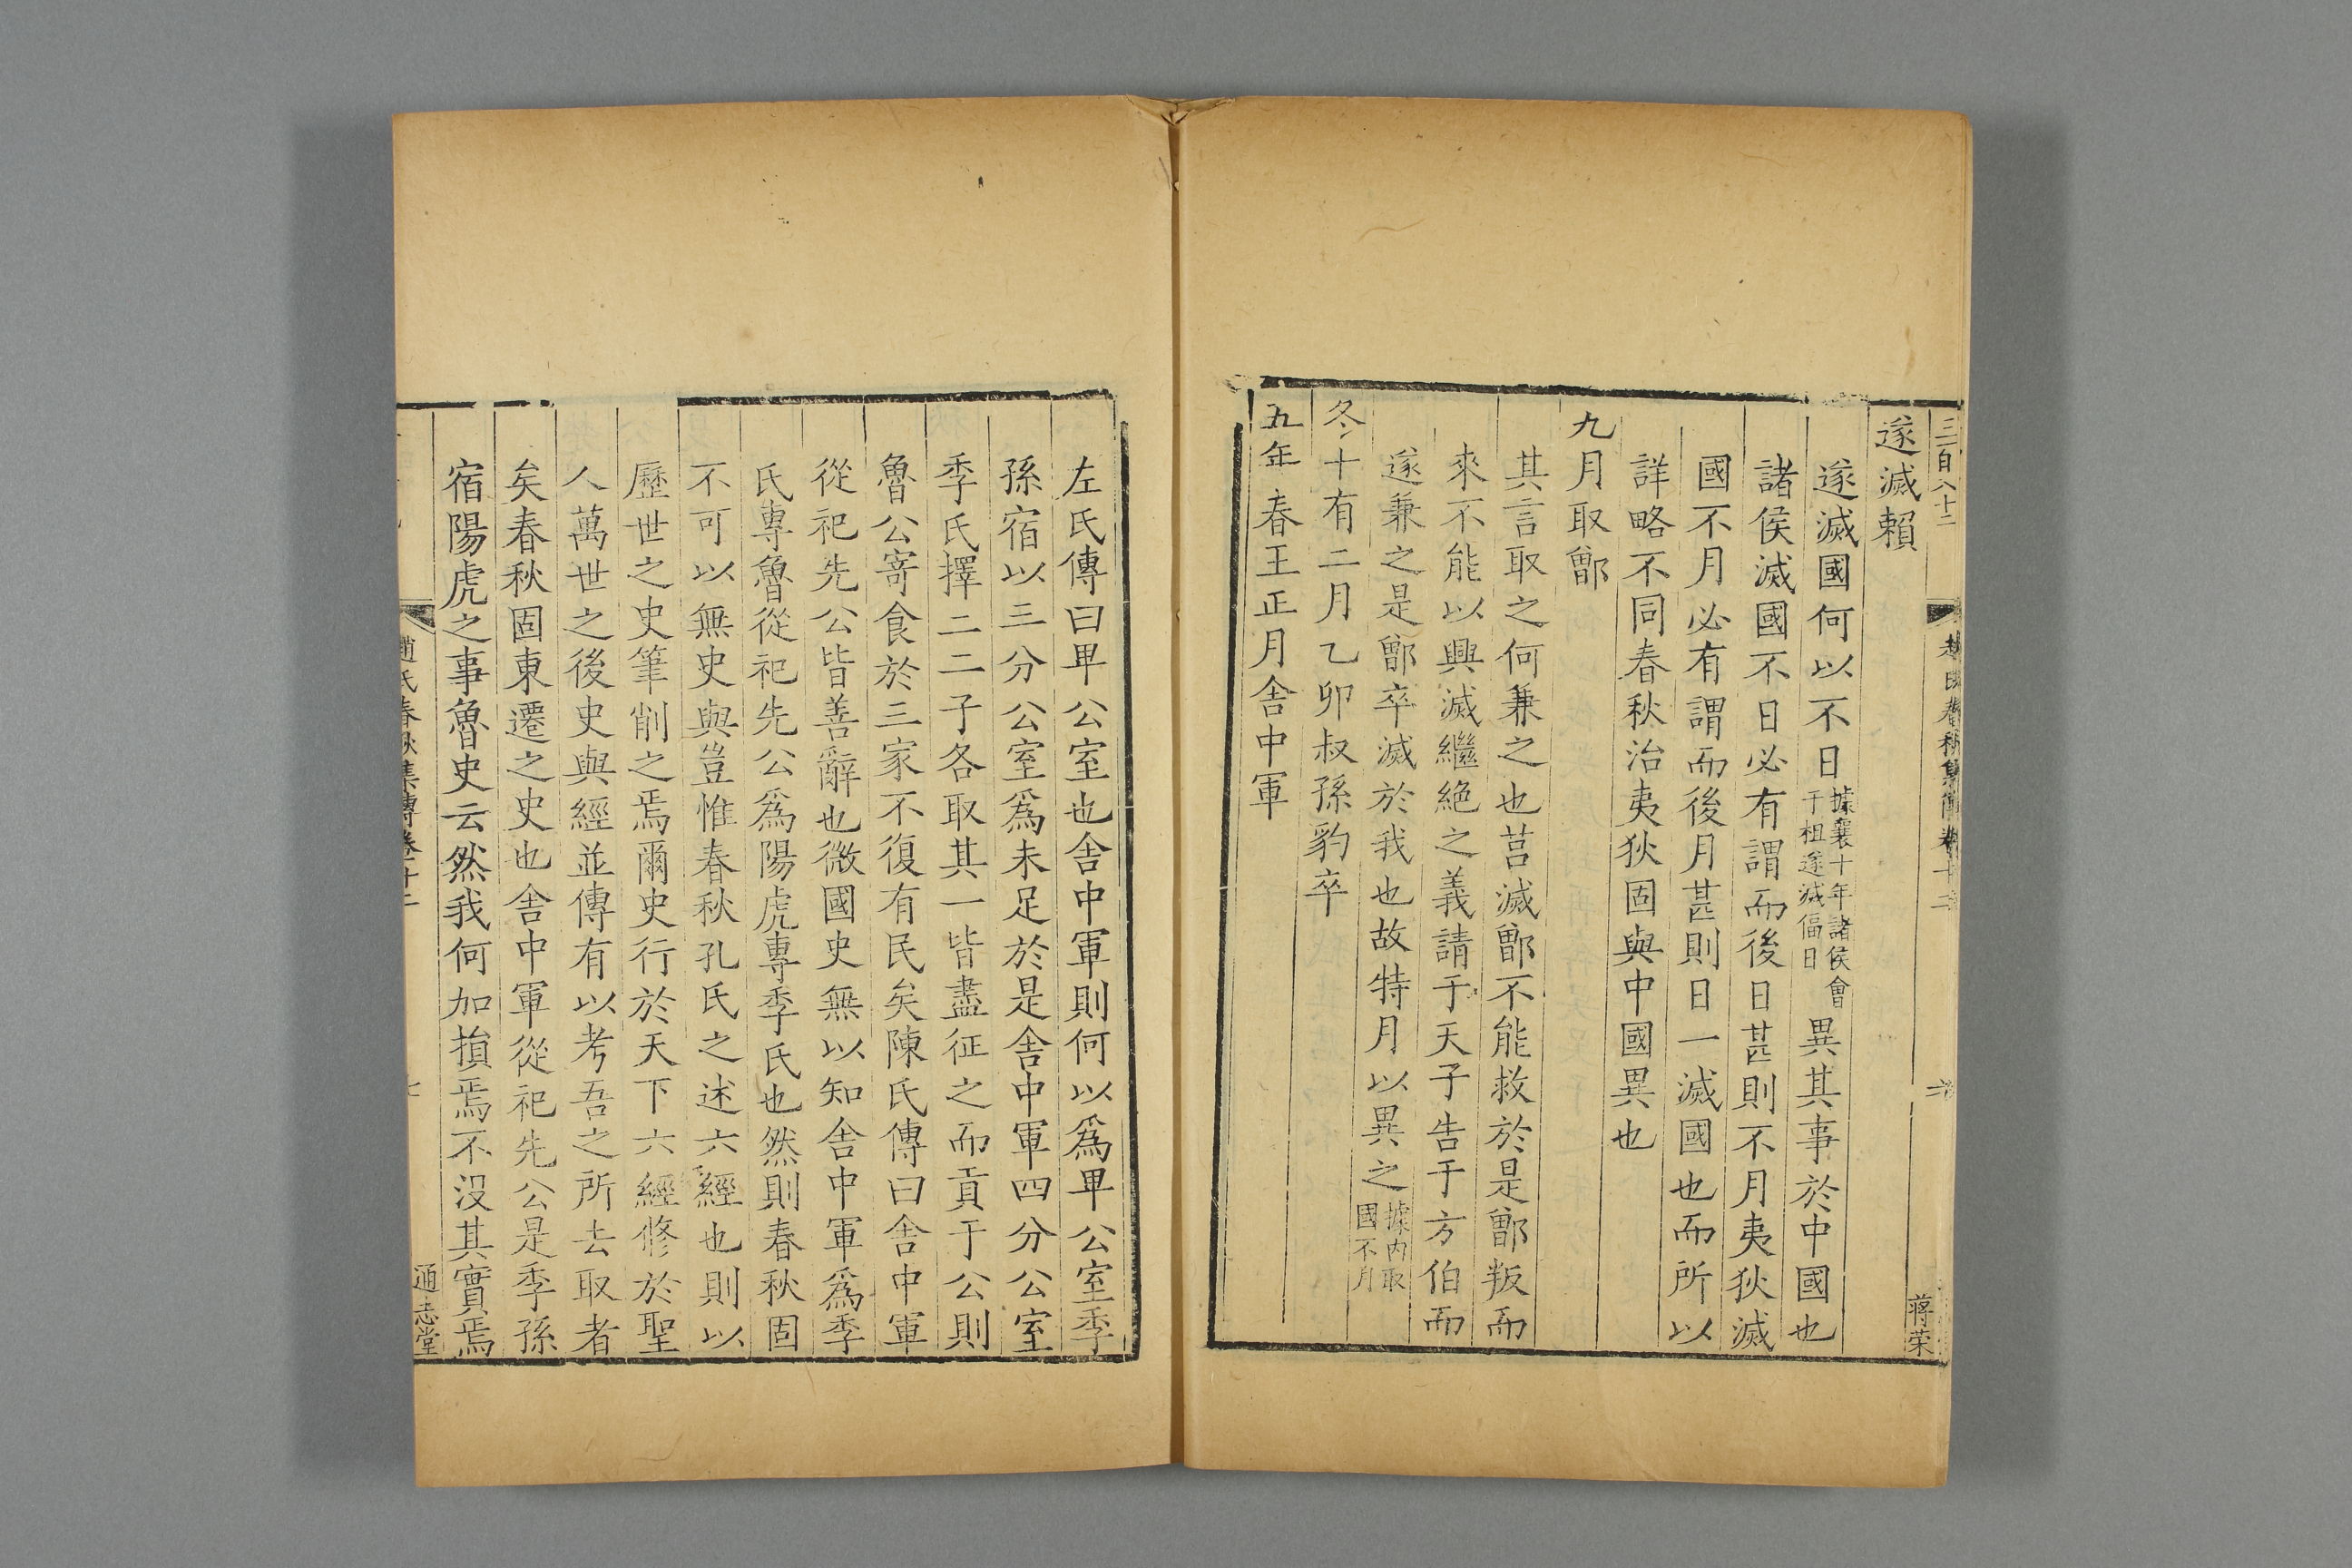 三百八十二
趙氏春秋集傳卷十二
六
蔣荣
遂滅賴
遂滅國何以不日據襄十年諸侯會于柤遂滅偪日異其事於中國也
諸侯滅國不日必有謂而後日甚則不月夷狄滅
國不月必有謂而後月甚則日一滅國也而所以
詳略不同春秋治夷狄固與中國異也
九月取鄫
其言取之何兼之也莒滅鄫不能救於是鄫叛而
來不能以興滅繼絶之義請于天子告于方伯而
遂兼之是鄫卒滅於我也故特月以異之據内取國不月
冬十有二月乙卯叔孫豹卒
五年春王正月舍中軍
左氏傳曰卑公室也舍中軍則何以爲卑公室季
孫宿以三分公室爲未足於是舍中軍四分公室
季氏擇二二子各取其一皆盡征之而貢于公則
魯公寄食於三家不復有民矣陳氏傳曰舍中軍
從祀先公皆善辭也微國史無以知舍中軍爲季
氏專魯從祀先公爲陽虎專季氏也然則春秋固
不可以無史與豈惟春秋孔氏之述六經也則以
歷世之史筆削之焉爾史行於天下六經修於聖
人萬世之後史與經並傳有以考吾之所去取者
矣春秋固東遷之史也舍中軍從祀先公是季孫
宿陽虎之事魯史云然我何加損焉不沒其實焉
趙氏春秋集傳卷十二
七
通志堂